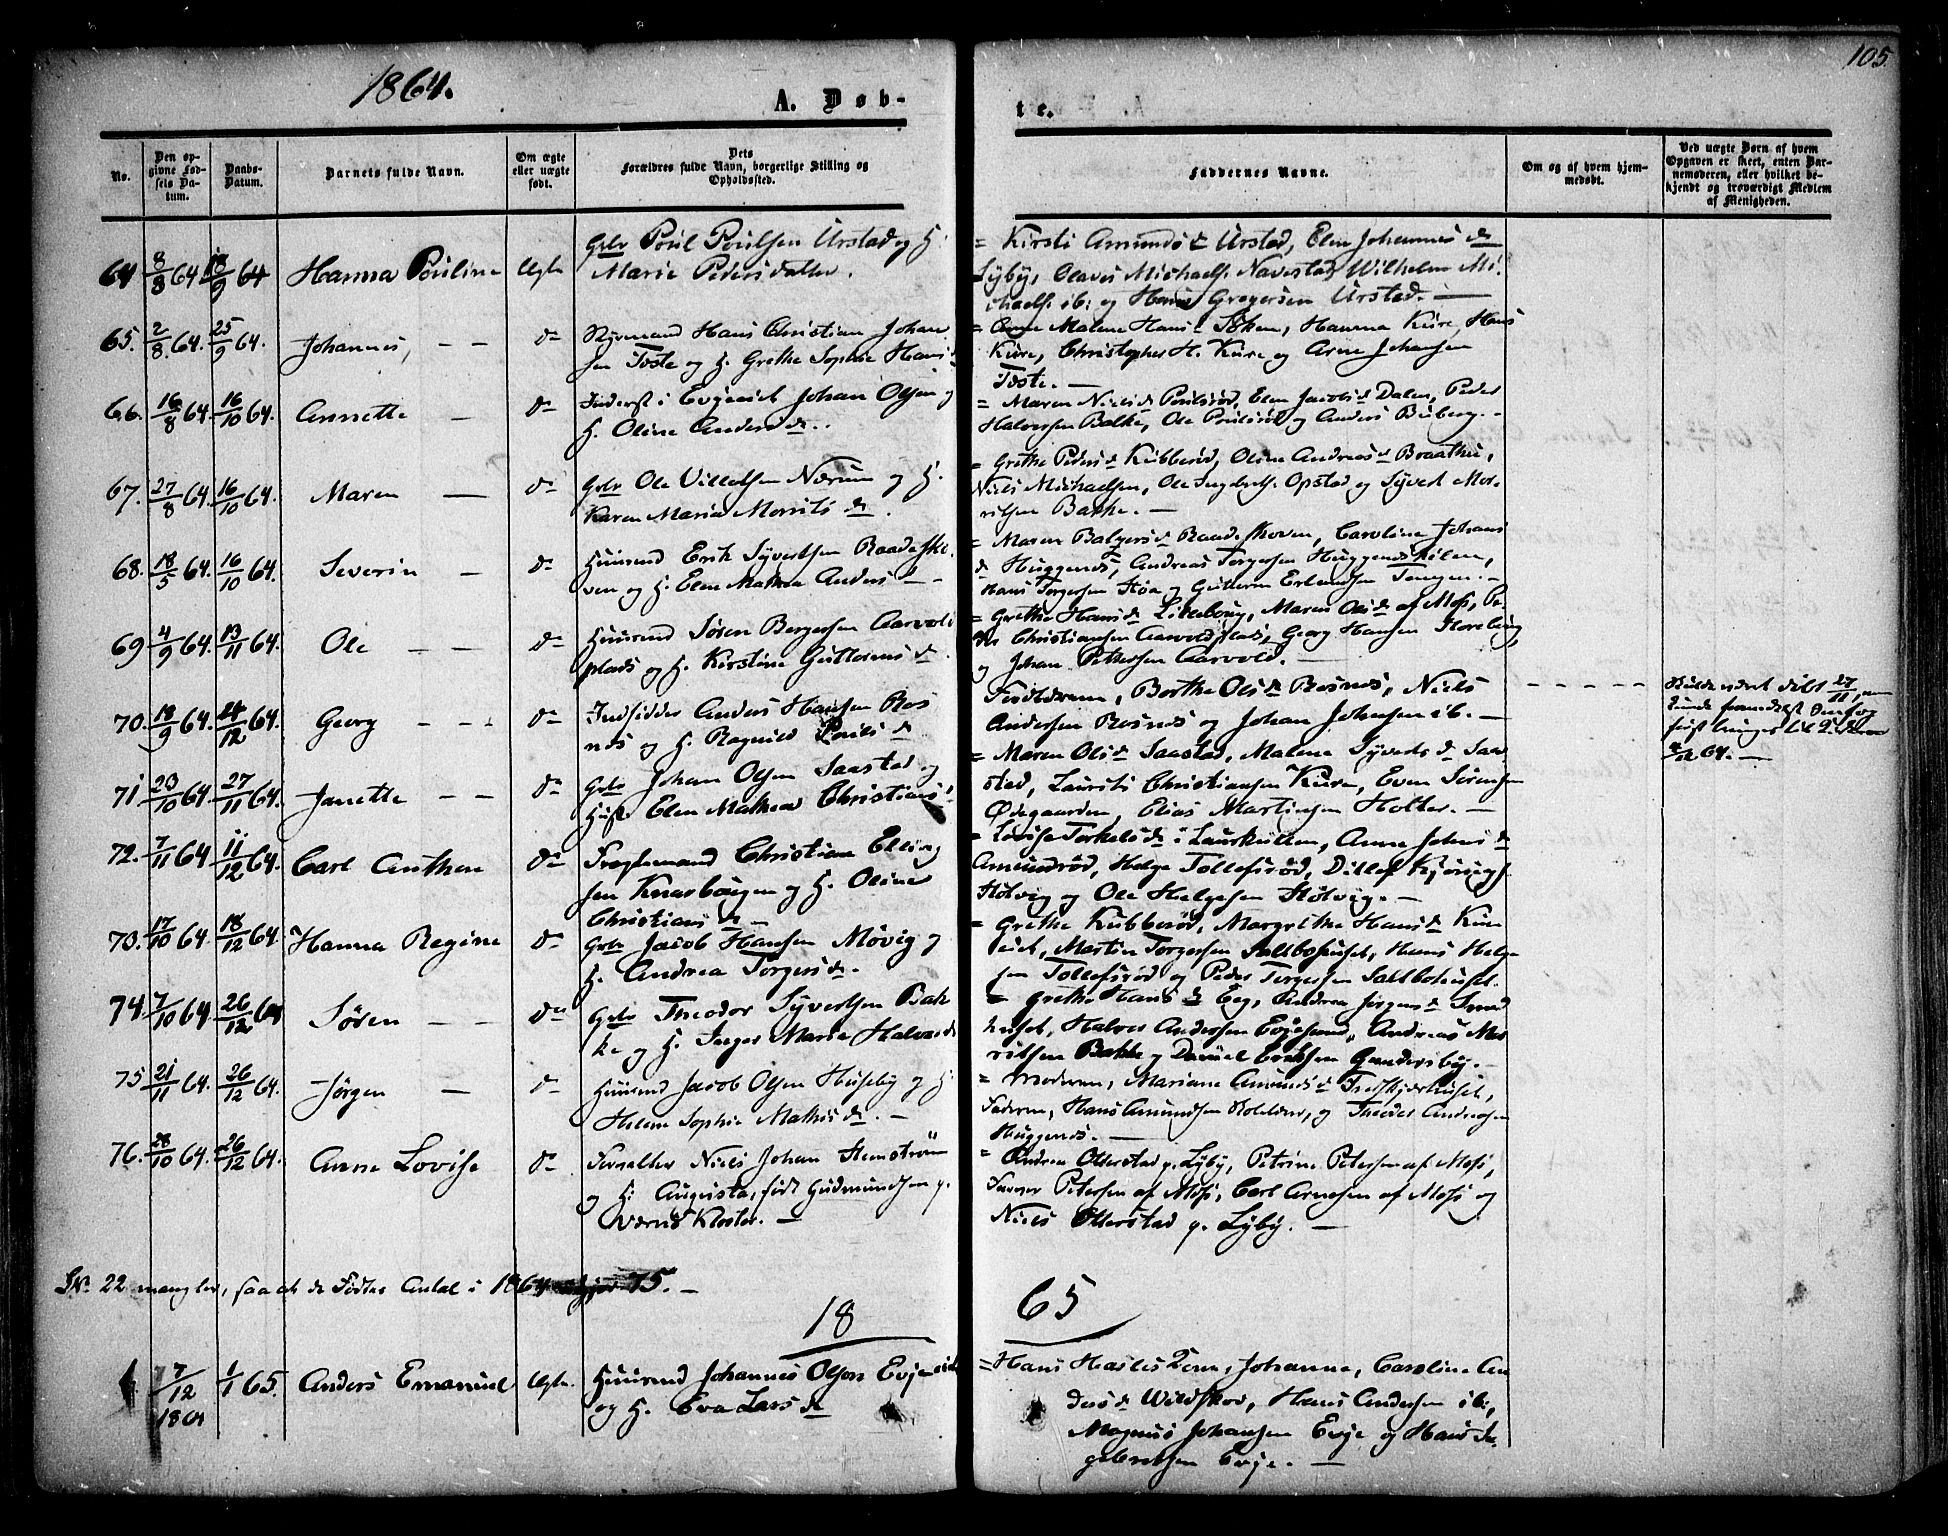 1864.
105.
A. Døb-
te.
No.
Den op-
givne Fød-
sels Da-
tum.
Daabs-
Datum.
Barnets fulde Navn.
Om ægte
eller uægte
født.
Dets
Forældres fulde Navn, borgerlige Stilling og
Opholdssted.
Faddernes Navne.
Om og af hvem hjem-
medøbt.
Ved uægte Børn af hvem
Opgaven er skeet, enten Bar-
nemoderen, eller hvilket be-
kjendt og troværdigt Medlem
af Menigheden.
64 8/8 64 18/9 64 Hanna Pouline Ægte Gbr Poul Poulsen Urstad og H.
Marie Pedersdatter.
= Kirsti Amunds d Urstad, Elen Johannes d
Lyby, Olaves Michaels. Navestad, Wilhelm Mi-
chaels. ib: og Hans Gregersen Urstad. —
65. 2/8 64. 25/9 64. Johannes, — — do Hans Christian Johan
sen Toste og H. Grethe Sophie Hans
= Anne Malene Hans d Hanna Kure, Hans
Kure, Christopher H. Kure og Arne Johansen
Toste. —
66. 16/8 64. 16/10 64. Annette — do Inderst i Evjeeiet Johan Olsen og
H. Oline Anders d.
= Maren Niels d Poulsrød, Elen Jacobs d Dalen, Peder
Halvorsen Bakke, Ole Poulsrød og Anders Buberg. -
67. 27/8 64. 16/10 64. Maren — do Gbr Ole Villetsen Nærum og H.
Karen Maria Morits d.
= Grethe Peders d Kubberød, Oline Andreas d Braathen,
Niels Michaelsen, Ole Opstad og Syvert Mou-
ritsen Bakke. —
68. 18/5 64. 16/10 64. Severin — do Huusmd Erik Syvertsen Raadesko
ven og H. Elen Mathea Anders —
= Maren Balgers d Raadeskoven, Caroline Johans
d Huggenes, Andreas Torgersen Huggeneskilen,
Hans Torgersen Stoa og Guttorm Erlandsen Tangen. -
69 4/9 64. 13/11 64. Ole — — do Huusmd Søren Bergersen Aarvold
plads og H. Kirstine Guttorms d.
= Grethe Hans d Lilleborg, Maren Ols d af Moss, Pe-
der Christiansen Aarvoldplads, Georg Hansen
og Johan Pettersen Aarvold. —
70. 18/9 64. 24/12 64. Georg — — - do Indsidder Anders Hansen Ros
næs og H. Ragnild Pouls d
Forældrene, Berthe Ols d Rosnæs, Niels
Andersen Rosnæs og Johan Johnsen ib. —
— — — — —
døbt 27/11,
64. —
71 20/10 64 27/11 64. Janette — — do Gbr Johan Olsen Saastad og
Hust. Elen Mathea Christians
= Maren Ols d Saastad, Malene Syverts d Saa
stad, Laurits Christiansen Kure, Even Sørensen
Ødegaarden, Elias Martinsen Holter. —
72. 7/11 64 11/12 64. Carl Anthon do Christian Elling
sen Knarborgen og H. Oline
Christians d —
= Lovise Torkels d i Laurkullen, Anne Johns d
Amundrød, Helge Tollefsrød, Ditlef
Støtvig og Ole Helgesen Støtvig. —
73. 17/10 64 18/12 64. Hanna Regine do Gbr Jacob Hansen Møvig og
H. Andrea Torgers d.
= Grethe Kubberød, Margrethe Hans d Kur
eiet, Martin Torgersen Saltbohuset, Hans Helge
sen Tollefsrød og Peder Torgersen Saltbohuset.
74. 7/10 64 26/12 64 Søren — — do Gbr Theodor Syvertsen Bak
ke og H. Inger Marie Halvors d
= Grethe Hans d Eeg, Andrea Jørgens d Smed
huset, Halvor Andersen Evjesund, Andreas Mo
ritsen Bakke og Daniel Eriksen Gunnersby. -
75 21/11 64. 26/12 64. Jørgen — do Huusmd Jacob Olsen Huseby og H.
Helene Sophie Mathis d. —
= Moderen, Mariane Amunds d
Faderen, Hans Amundsen og Theodor Andreasen
Huggenes. —
76. 28/10 64. 26/12 64. Anne Lovise do Forvalter Niels Johan Stenström
og H: Augusta, født Gudmundsen p.
Værne Kloster. —
= Andrea Otterstad p. Lyby, Petrine Petersen af Moss,
Petersen af Moss, Carl Arnesen af Moss og
Niels Otterstad p. Lyby. —
No 22 mangler, saa at de Fødtes Antal i 1864 75. —
18
65
1. 7/12 1864 1/1 65. Anders Emanuel Ægte. Huusmd Johannes Olsen Evjeeiet
og H. Eva Lars d
= Hans Johanne, Caroline An
ders d Wildskov, Hans Andersen ib:,
Magnus Johansen Evje og Hans In-
gebretsen Evje. —